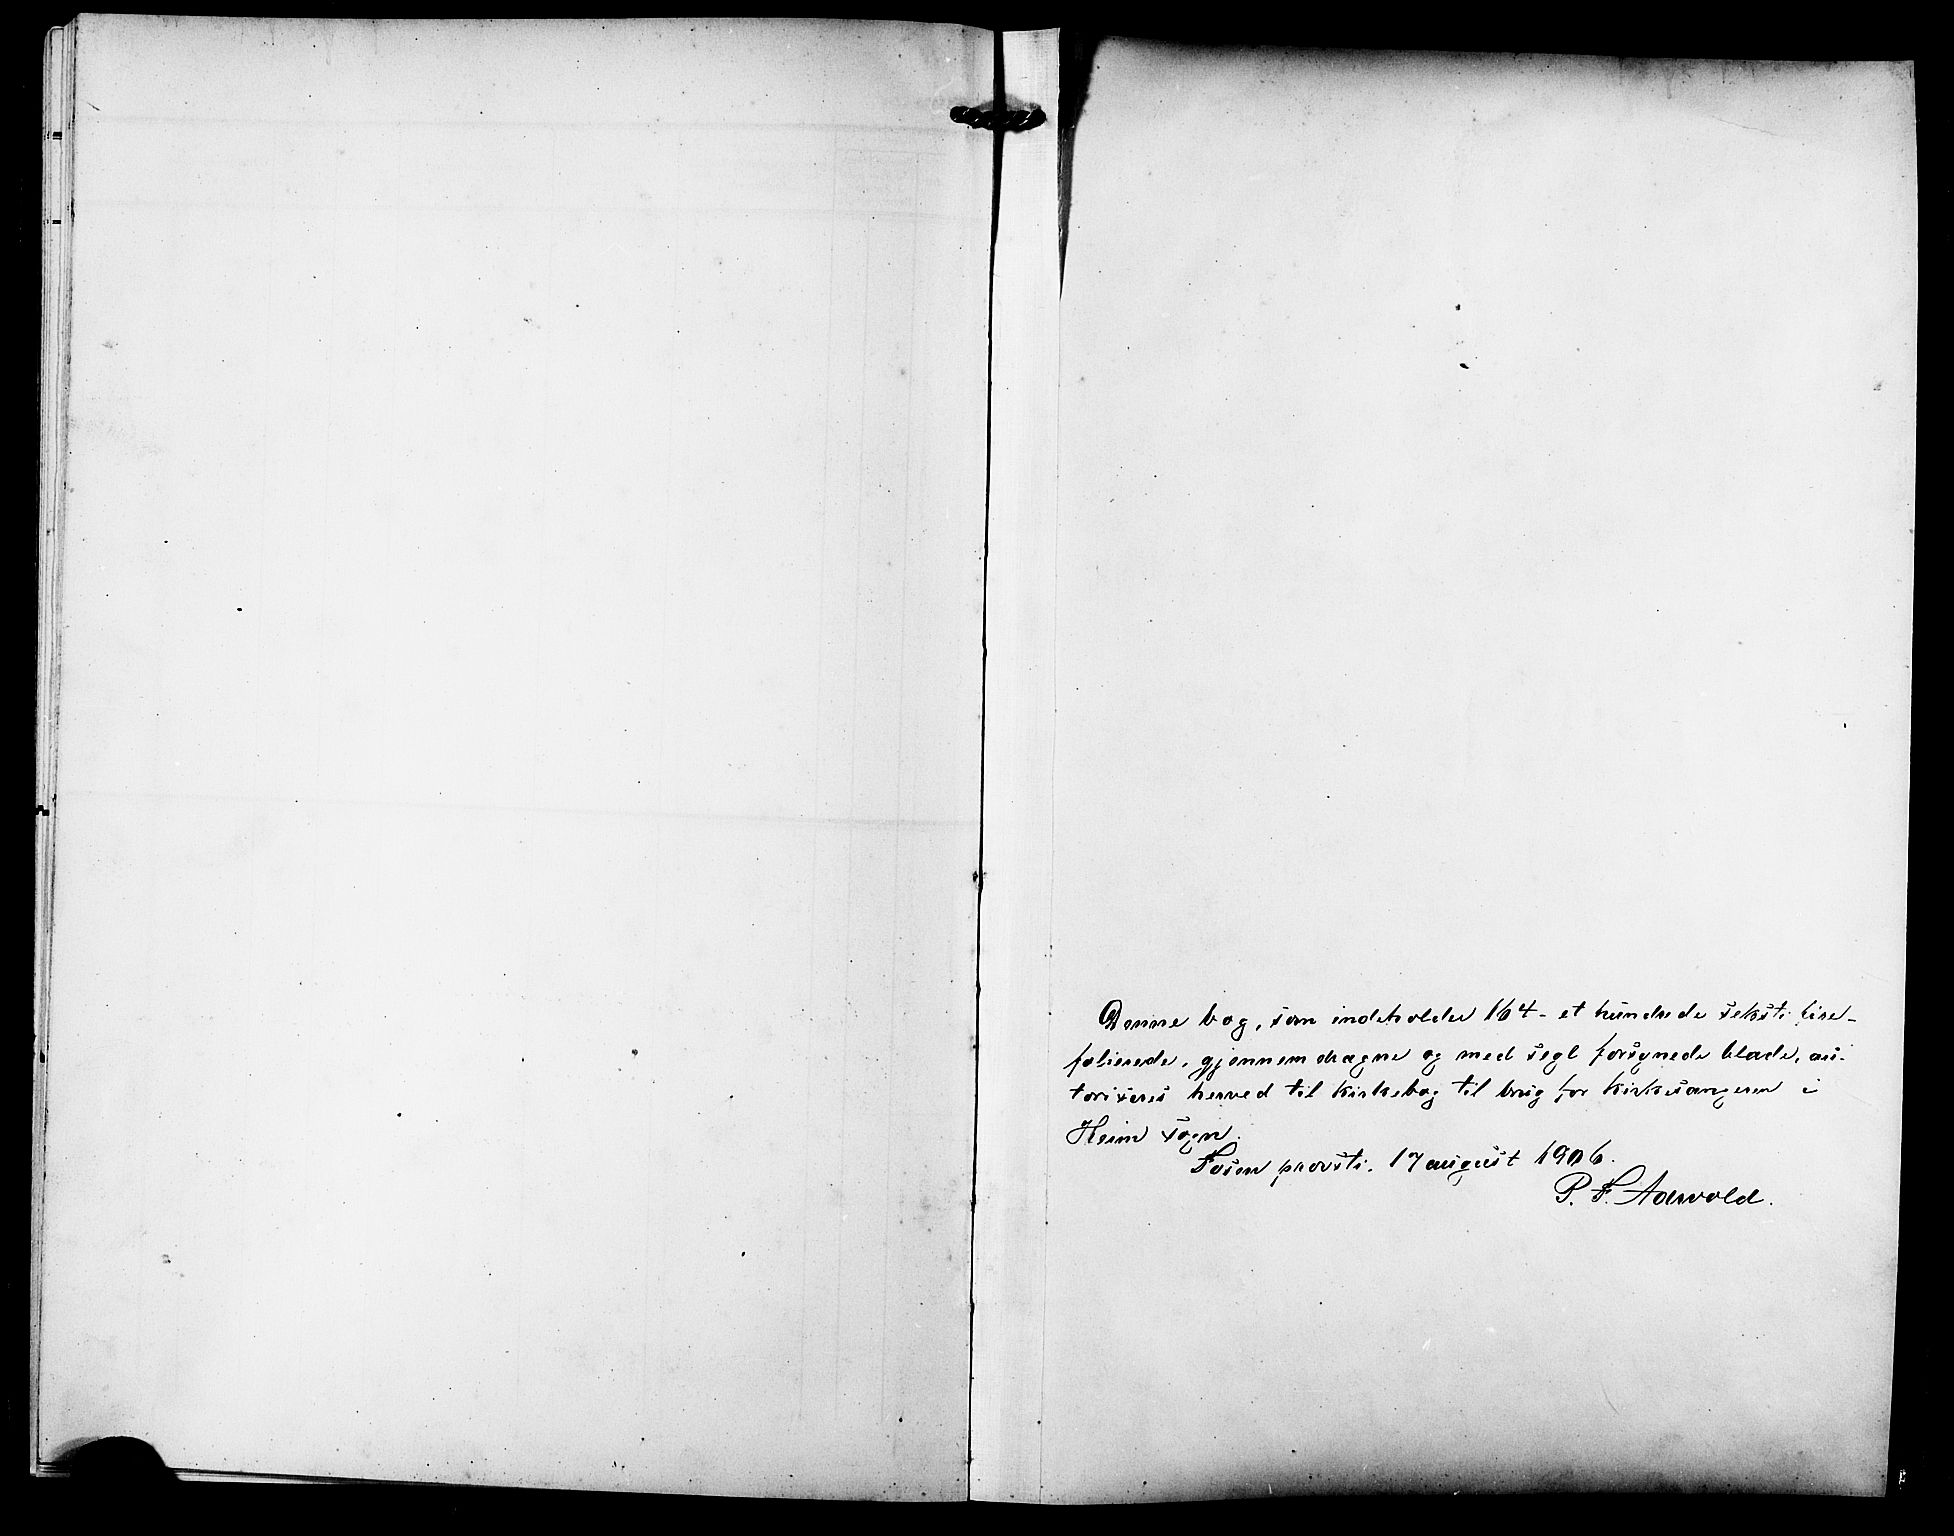 Denne bog, som indeholder 164 - et hundrede seksti fire -
folierede, gjennemdragne og med segl forsynede blade, au-
toriseres herved til kirkebog til brug for kirkesangeren i
Heim sogn.
Fosen provsti, 17 august 1906.
P. F. Aarvold.